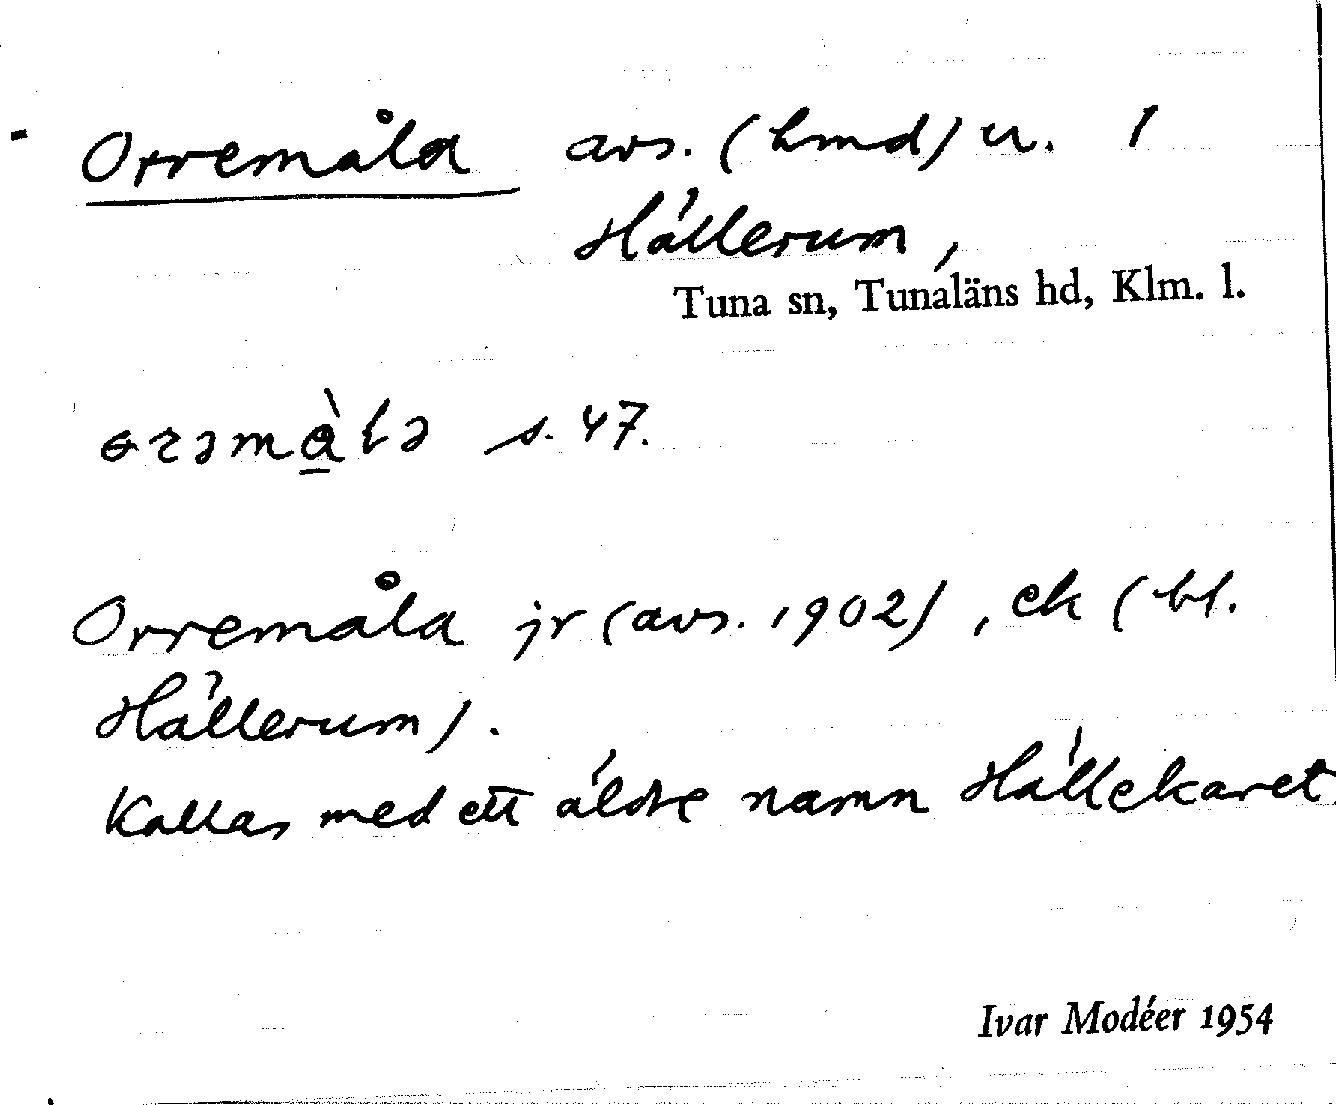 Orremåla avs. (hmd) u. 1
Hällerum,
Tuna sn, Tunaläns hd, Klm. l.
s. 47.
Orremåla jr (avs. 1902), ek (bl.
Hällerum).
Kallas med ett äldre namn Hällekaret
Ivar Modéer 1954